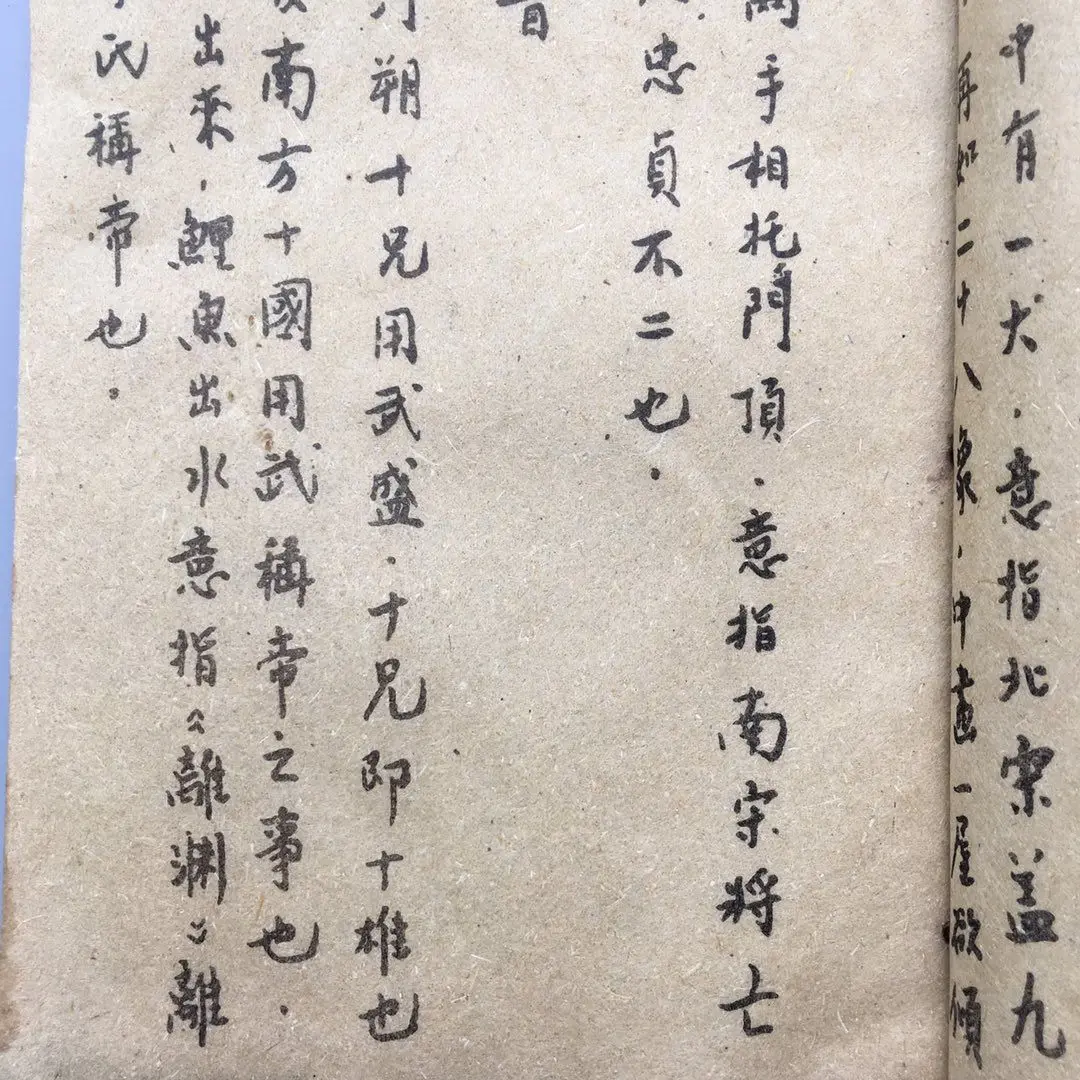 中有一犬．意指北宋蓋九
再如二十八象．中畫一屋欲傾
兩手相托門頂．意指南宋將亡
忠貞不二也．
首
朔十兄用武盛．十兄即十雄也
南方十國用武稱帝之事也．
出來．鯉魚出水意指《離淵》離
氏稱帝也。